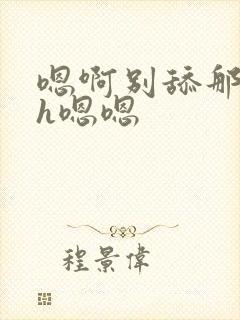 嗯啊别舔那
h嗯嗯
程景偉